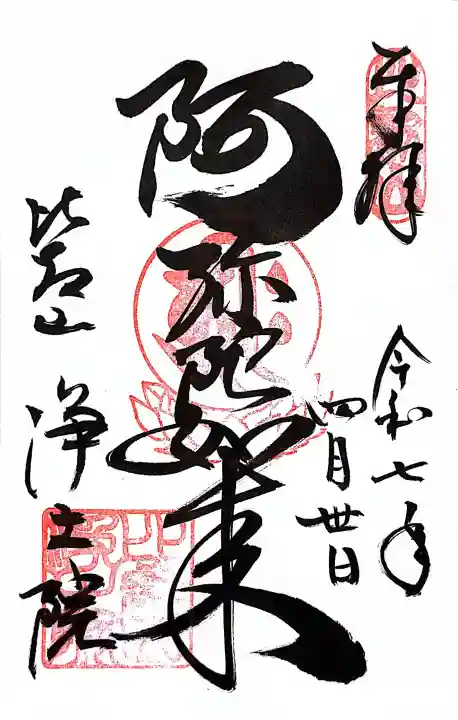 奉拝
令和七年
四月丗日
阿弥陀如来
比叡山
浄土院